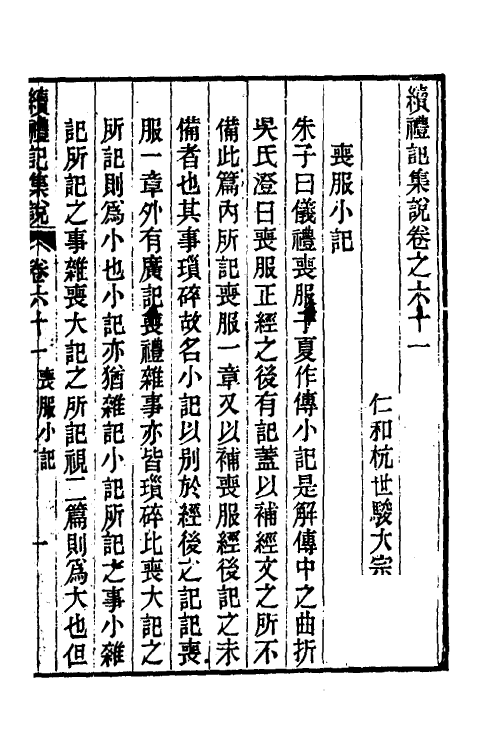 續禮記集說卷之六十一
仁和杭世駿大宗
喪服小記
朱子曰儀禮喪服子夏作傳小記是解傳中之曲折
吳氏澄曰喪服正經之後有記蓋以補經文之所不
備此篇內所記喪服一章又以補喪服經後記之未
備者也其事瑣碎故名小記以別於經後之記記喪
服一章外有廣記喪禮雜事亦皆瑣碎比喪大記之
所記則爲小也小記亦猶雜記小記所記之事小雜
記所記之事雜喪大記之所記視二篇則爲大也但
續禮記集說 卷六十一 喪服小記 一